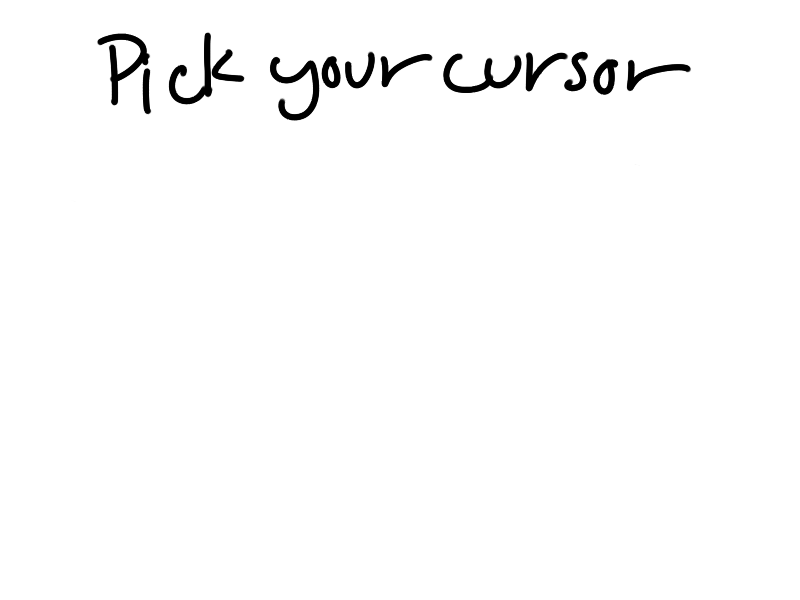 Pick your cursor